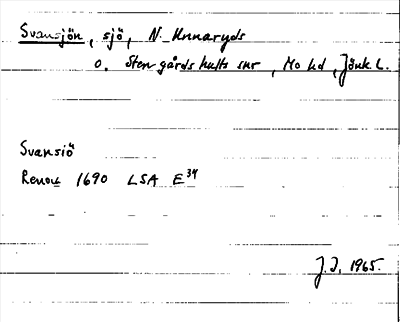 Svansjön, sjö, N. Unnaryds
o. Stengårdshults snr, Mo hd, Jönk. L.
Svansiö
Renov 1690 LSA E³⁴
J.I. 1965.